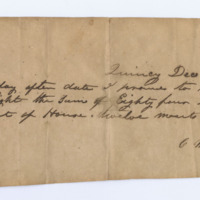 Quincy Dec
day after date I promise to
the Sum of Eighty four
of House. twelve